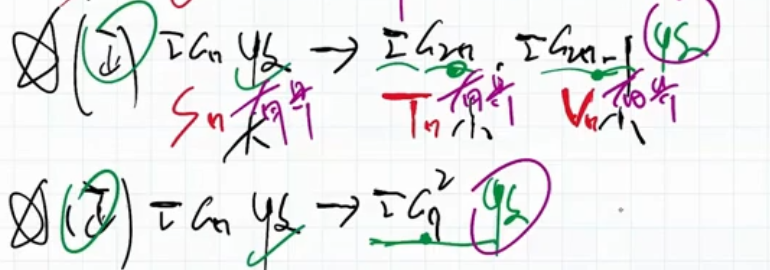 (正) Σ aₙ 收 → Σ a₂ₙ, Σ a₂ₙ₋₁ 收
Sₙ 有界 大 Tₙ 有界 小 Vₙ 有界 小
(正) Σ aₙ 收 → Σ aₙ² 收